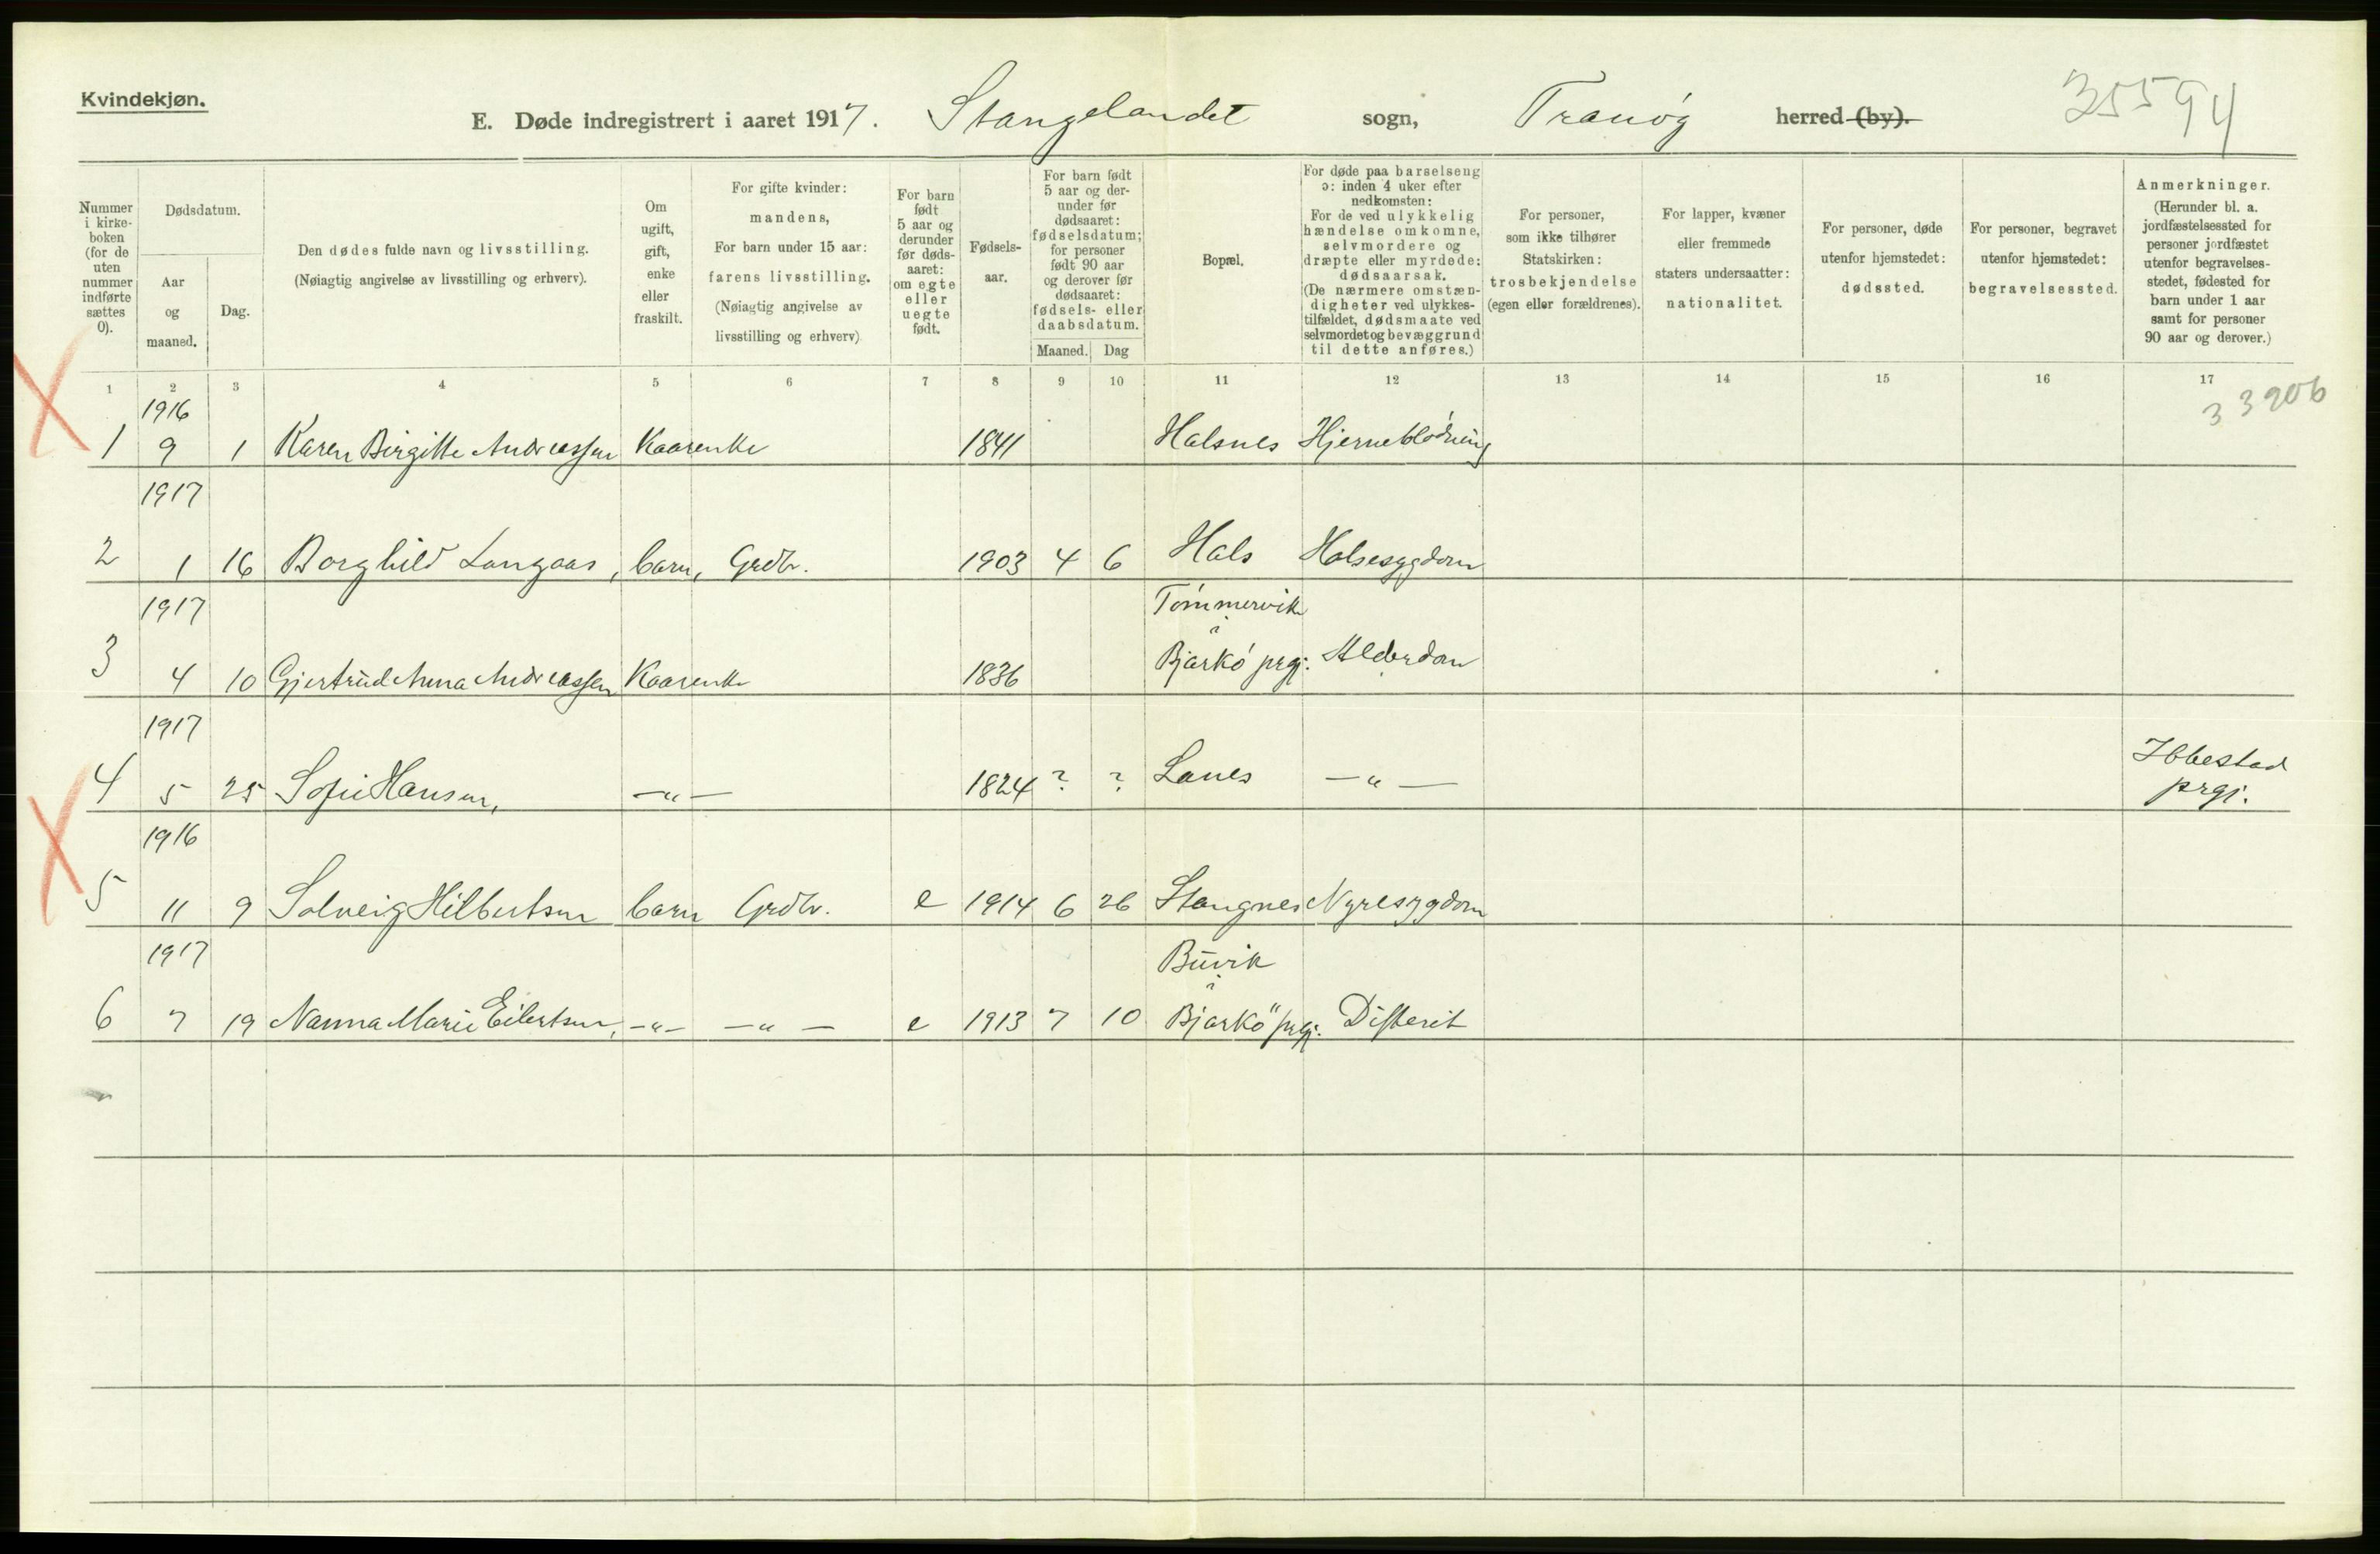 Kvindekjøn.
E. Døde indregistrert i aaret 1917. Stangelandet sogn, Tranøy herred (by). 35594
Nummer i kirke-boken (for de uten nummer indførte sættes 0).
Dødsdatum.
Aar og maaned.
Dag.
Den dødes fulde navn og livsstilling.
(Nøiagtig angivelse av livsstilling og erhverv).
Om ugift, gift, enke eller fraskilt.
For gifte kvinder: mandens, For barn under 15 aar: farens livsstilling. (Nøiagtig angivelse av livsstilling og erhverv)
For barn født 5 aar og derunder før døds-aaret: om egte eller uegte født.
Fødsels-aar.
For barn født 5 aar og der-under før dødsaaret: fødselsdatum; for personer født 90 aar og derover før dødsaaret: fødsels- eller daabsdatum.
Maaned. Dag
Bopæl.
For døde paa barselseng ɔ: inden 4 uker efter nedkomsten: For de ved ulykkelig hændelse omkomne, selvmordere og dræpte eller myrdede: dødsaarsak. (De nærmere omstæn-digheter ved ulykkes-tilfældet, dødsmaate ved selvmordet og bevæggrund til dette anføres.)
For personer, som ikke tilhører Statskirken: trosbekjendelse (egen eller forældrenes).
For lapper, kvæner eller fremmede staters undersaatter: nationalitet.
For personer, døde utenfor hjemstedet: dødssted.
For personer, begravet utenfor hjemstedet: begravelsessted.
Anmerkninger. (Herunder bl. a. jordfæstelsessted for personer jordfæstet utenfor begravelses-stedet, fødested for barn under 1 aar samt for personer 90 aar og derover.)
1 2 3 4 5 6 7 8 9 10 11 12 13 14 15 16 17
33906
1916
1 9 1 Karen Birgitte Andreassen Kaarenke 1841 Halsnes Hjerneblødning
1917
2 1 16 Borghild Langaas, barn, Grdbr. 1903 4 6 Hals Halsesygdom
1917 Tømmervik
i
3 4 10 Gjertrud Anna Andreassen Kaarenke 1836 Bjarkö prgj. Alderdom
1917
4 5 25 Sofie Hansen, —"— 1824 ? ? Lanes —"— Ibbestad
prgj.
1916
5 11 9 Solveig Hilbertsen barn Grdbr. e 1914 6 26 Stangnes Nyresygdom
1917 Buvik
i
6 7 19 Nanna Marie Eilertsen, —"— —"— e 1913 7 10 Bjarkö prgj. Difterit